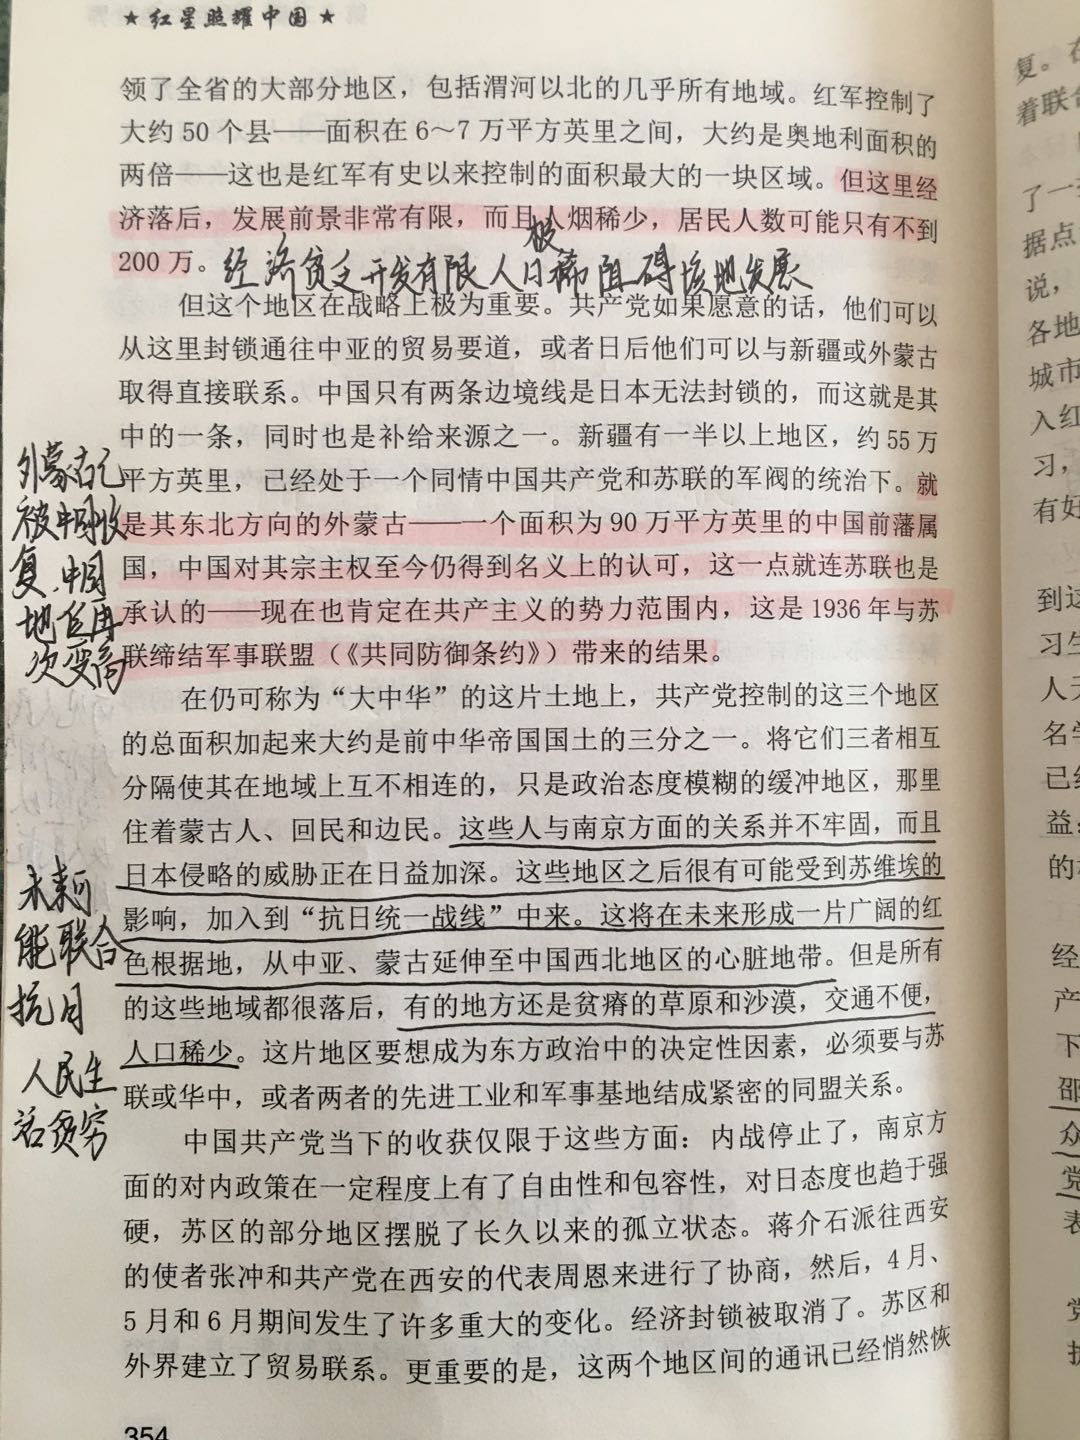 ★红星照耀中国★
领了全省的大部分地区，包括渭河以北的几乎所有地域。红军控制了
大约 50 个县——面积在 6～7 万平方英里之间，大约是奥地利面积的
两倍——这也是红军有史以来控制的面积最大的一块区域。但这里经
济落后，发展前景非常有限，而且人烟稀少，居民人数可能只有不到
极
200 万。经济贫乏开发有限人口稀阻碍该地发展
但这个地区在战略上极为重要。共产党如果愿意的话，他们可以
从这里封锁通往中亚的贸易要道，或者日后他们可以与新疆或外蒙古
取得直接联系。中国只有两条边境线是日本无法封锁的，而这就是其
中的一条，同时也是补给来源之一。新疆有一半以上地区，约 55 万
平方英里，已经处于一个同情中国共产党和苏联的军阀的统治下。就
是其东北方向的外蒙古——一个面积为 90 万平方英里的中国前藩属
国，中国对其宗主权至今仍得到名义上的认可，这一点就连苏联也是
承认的——现在也肯定在共产主义的势力范围内，这是 1936 年与苏
联缔结军事联盟（《共同防御条约》）带来的结果。
外蒙古已
被中国收
复，中国
地位再
次变高
在仍可称为“大中华”的这片土地上，共产党控制的这三个地区
的总面积加起来大约是前中华帝国国土的三分之一。将它们三者相互
分隔使其在地域上互不相连的，只是政治态度模糊的缓冲地区，那里
住着蒙古人、回民和边民。这些人与南京方面的关系并不牢固，而且
日本侵略的威胁正在日益加深。这些地区之后很有可能受到苏维埃的
影响，加入到“抗日统一战线”中来。这将在未来形成一片广阔的红
色根据地，从中亚、蒙古延伸至中国西北地区的心脏地带。但是所有
的这些地域都很落后，有的地方还是贫瘠的草原和沙漠，交通不便，
人口稀少。这片地区要想成为东方政治中的决定性因素，必须要与苏
联或华中，或者两者的先进工业和军事基地结成紧密的同盟关系。
未来可
能联合
抗日
人民生
活贫穷
中国共产党当下的收获仅限于这些方面：内战停止了，南京方
面的对内政策在一定程度上有了自由性和包容性，对日态度也趋于强
硬，苏区的部分地区摆脱了长久以来的孤立状态。蒋介石派往西安
的使者张冲和共产党在西安的代表周恩来进行了协商，然后，4 月、
5 月和 6 月期间发生了许多重大的变化。经济封锁被取消了。苏区和
外界建立了贸易联系。更重要的是，这两个地区间的通讯已经悄然恢
354
复。在
着联合
了一
据点
说，
各地
城市
入红
习，
有好
到这
习生
人天
名学
已经
益；
的
经
产
下
邵
众
党
表
党